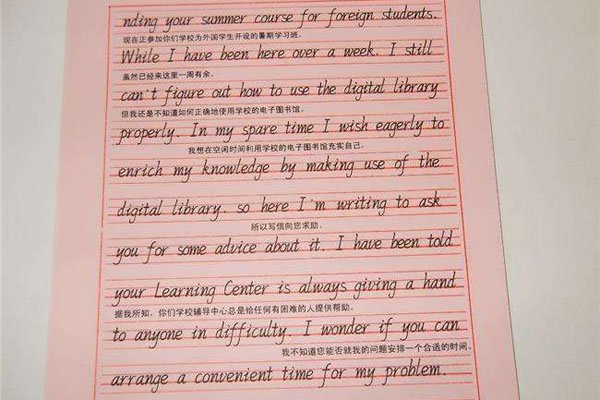 nding your summer course for foreign students.
现在正参加你们学校为外国学生开设的暑期学习班.
While I have been here over a week. I still
虽然已经来这里一周有余,
can't figure out how to use the digital library
但我还是不知道如何正确地使用学校的电子图书馆.
properly. In my spare time I wish eagerly to
我想在空闲时间利用学校的电子图书馆充实自己,
enrich my knowledge by making use of the
digital library. so here I'm writing to ask
所以写信向您求助.
you for some advice about it. I have been told
your Learning Center is always giving a hand
据我所知, 你们学校辅导中心总是给任何有困难的人提供帮助.
to anyone in difficulty. I wonder if you can
我不知道您能否就我的问题安排一个合适的时间.
arrange a convenient time for my problem.